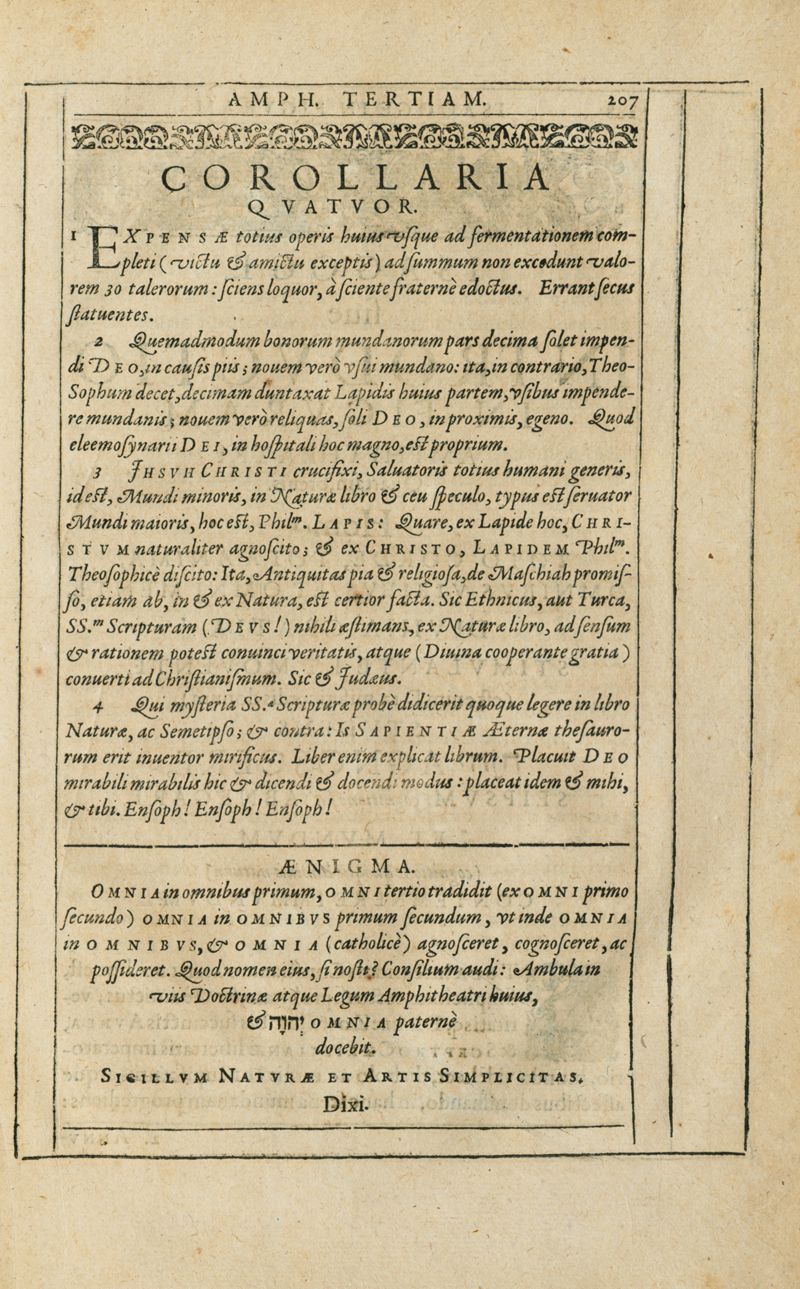 AMPH. TERTIAM. 207
COROLLARIA
QVATVOR.
1 EXPENSÆ totius operis huius vſque ad fermentationem com-
pleti (victu & amictu exceptis) ad ſummum non excedunt valo-
rem 30 talerorum: ſciens loquor, à ſciente fraternè edoctus. Errant ſecus
ſtatuentes.
2 Quemadmodum bonorum mundanorum pars decima ſolet impen-
di DEO, in cauſis piis; nouem verò vſui mundano: ita, in contrario, Theo-
Sophum decet, decimam duntaxat Lapidis huius partem, vſibus impende-
re mundanis; nouem verò reliquas, ſoli DEO, in proximis, egeno. Quod
eleemoſynarii DEI, in hoſpitali hoc magno, eſt proprium.
3 JHSVH CHRISTI crucifixi, Saluatoris totius humani generis,
id eſt, Mundi minoris, in Naturæ libro & ceu ſpeculo, typus eſt ſeruator
Mundi maioris, hoc eſt, Philᵐ. LAPIS: Quare, ex Lapide hoc, CHRI-
STVM naturaliter agnoſcito; & ex CHRISTO, LAPIDEM Philᵐ.
Theoſophicè diſcito: Ita, Antiquitas pia & religioſa, de Maſchiah promiſ-
ſo, etiam ab, in & ex Natura, eſt certior facta. Sic Ethnicus, aut Turca,
SS.ᵐ Scripturam (DEVS!) nihili æſtimans, ex Naturæ libro, ad ſenſum
& rationem poteſt conuinci veritatis, atque (Diuina cooperante gratia)
conuerti ad Chriſtianiſmum. Sic & Judæus.
4 Qui myſteria SS.ᵃ Scripturæ probè didicerit quoque legere in libro
Naturæ, ac Semetipſo; & contra: Is SAPIENTIÆ Æternæ theſauro-
rum erit inuentor mirificus. Liber enim explicat librum. Placuit DEO
mirabili mirabilis hic & dicendi & docendi modus: placeat idem & mihi,
& tibi. Enſoph! Enſoph! Enſoph!
ÆNIGMA.
OMNIA in omnibus primum, OMNI tertio tradidit (ex OMNI primo
ſecundo) OMNIA in OMNIBVS primum ſecundum, vt inde OMNIA
in OMNIBVS, & OMNIA (catholicè) agnoſceret, cognoſceret, ac
poſſideret. Quod nomen eius, ſi noſti? Conſilium audi: Ambula in
viis Doctrinæ atque Legum Amphitheatri huius,
& יְהֹוָה OMNIA paternè
docebit.
SIGILLVM NATVRÆ ET ARTIS SIMPLICITAS.
Dixi.